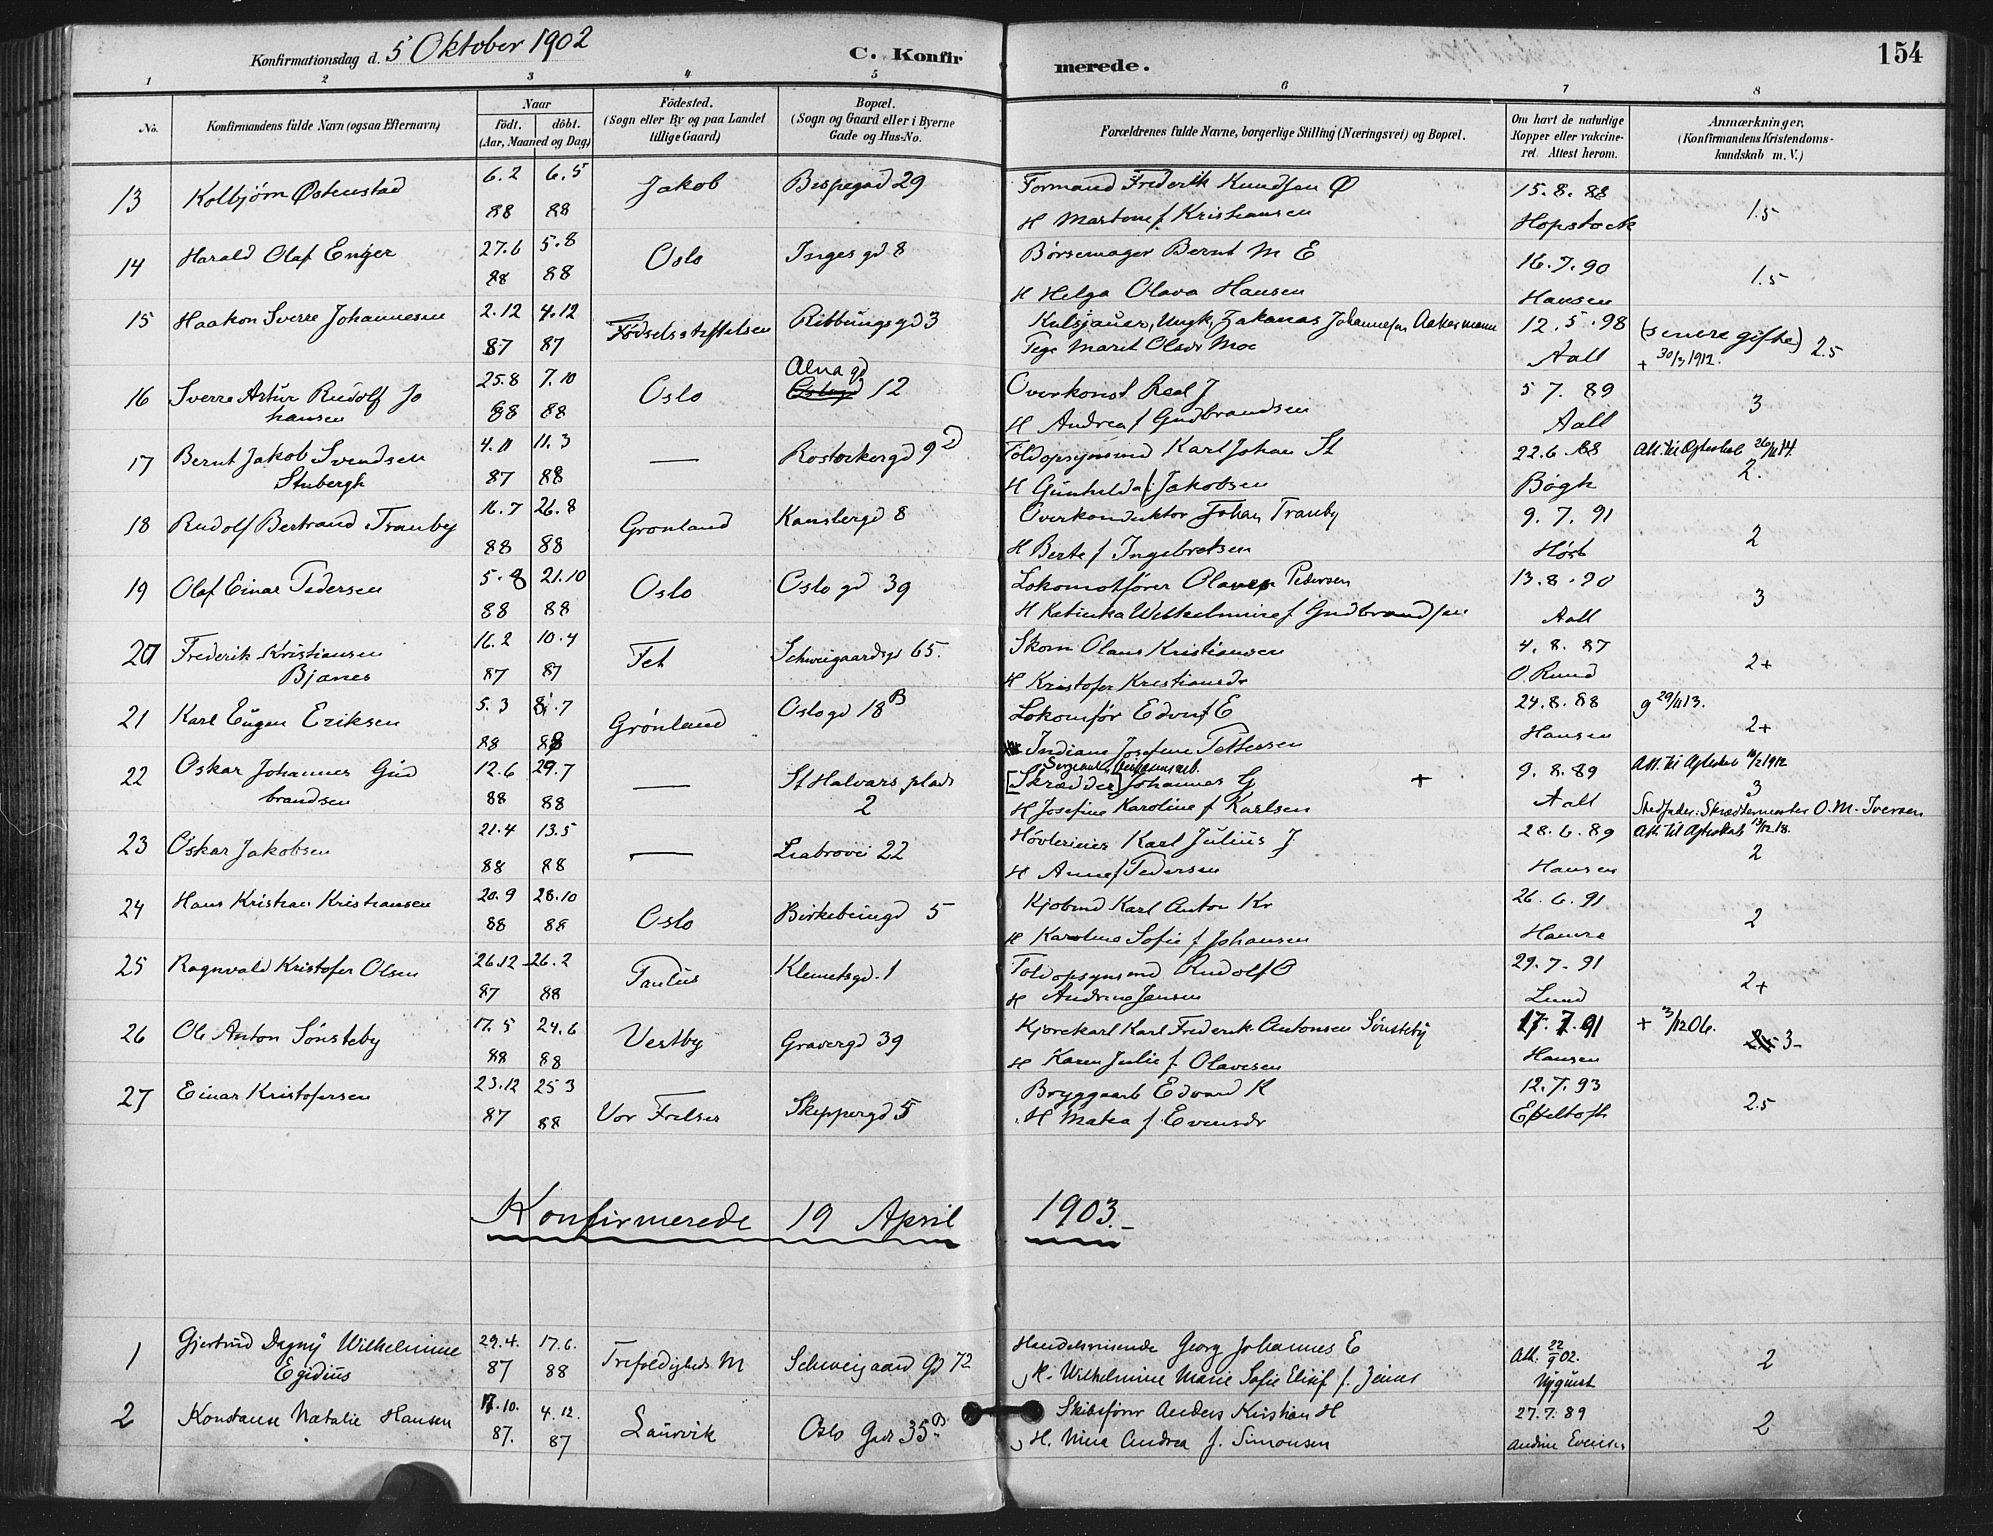 Konfirmationsdag d. 5 Oktober 1902 C. Konfirmerede. 154
1 2 3 4 5 6 7 8
No. Konfirmandens fulde Navn (ogsaa Efternavn) Naar født. døbt. (Aar, Maaned og Dag) Fødested. (Sogn eller By og paa Landet tillige Gaard) Bopæl. (Sogn og Gaard eller i Byerne Gade og Hus-No. Forældrenes fulde Navne, borgerlige Stilling (Næringsvei) og Bopæl. Om havt de naturlige Kopper eller vakcineret. Attest herom. Anmærkninger, (Konfirmandens Kristendomskundskab m. V.)
13 Kolbjørn Østenstad 6.2 6.5 Jakob Bispegad 29 Formand Frederik Knudsen Ø 15.8.88
88 88 H Martine f Kristiansen Hopstock 1.5
14 Harald Olaf Enger 27.6 5.8 Oslo Inges gd 8 Børsemager Bernt M E 16.7.90
88 88 H Helga Olava Hansen Hansen 1.5
15 Haakon Sverre Johannesen 2.12 4.12 Fødselsstiftelsen Ribbungsgd 3 Kulsjauer, Ungk, Zakarias Johannesen Aakermann 12.5.98 (senere gifte) 2.5
87 87 Pige Marit Olsdr Moe Aall + 30/3 1912.
16 Sverre Artur Rudolf Jo 25.8 7.10 Oslo Alna gd 12 Overkonst Reel J 5 7. 89
hansen 88 88 H Andrea f Gudbrandsen Aall 3
17 Bernt Jakob Svendsen 4.11 11.3 — Rostockergd 9 D Toldopsynsmd Karl Johan St 22.6 88 Att. til
Stubergh 87 88 H Gunhilda f. Jakobsen Bøgh 2.
18 Rudolf Bertrand Tranby 16.7 26.8 Grønland Kanslergd 8 Overkonduktør Johan Tranby 9.7.91
88 88 H Berte f Ingebretsen Høst 2
19 Olaf Einar Pedersen 5.8 21.10 Oslo Oslo gd 39 Lokomotfører Olaves Pedersen 13.8.90
88 88 H Katinka Wilhelmine f Gudbrandsen Aall 3
20 Frederik Kristiansen 16.2 10.4 Fet Schweigaardsgd 65. Skom Olaus Kristiansen 4.8.87
Bjanes 87 87 H Kristofa Kristiansdr O Rund 2+
21 Karl Eugen Eriksen 5.3 8.7 Grönland Oslogd 18 B Lokomfør Edvin E 24.8.88 g 29/11 13.
88 88 H Indiana Josefine Pettersen Hansen 2+
22 Oskar Johannes Gud 12.6 29.7 — St Halvars plads Sergeant [Skrædder] Johannes G + 9.8.89
brandsen 88 88 2 H Josefine Karoline f Karlsen Aall 3 Stedfader: Skræddermester O. M. Iversen
23 Oskar Jakobsen 21.4 13.5 — Liabrovei 22 Høvlerieier Karl Julius J 28.6.89
88 88 H Anne f Pedersen Hansen 2
24 Hans Kristian Kristiansen 20.9 28.10 Oslo Birkebeingd 5 Kjøbmd Karl Anton Kr 26.6.91
88 88 H Karoline Sofie f Johansen Hamre 2
25 Ragnvald Kristofer Olsen 26.12 26.2 Paulus Klemetsgd. 1 Toldopsynsmd Rudolf O 29.7.91
87 88 H Andrine Jensen Lund 2+
26 Ole Anton Sønsteby 17.5 24.6 Vestby Gravergd 39 Kjørekarl Karl Frederik Antonsen Sønsteby 17.7.91 + 3/12 06.
88 88 H Karen Julie f. Olavesen Hansen 3-
27 Einar Kristofersen 23.12 25 3 Vor Frelser Skippergd 5 Bryggearb Edvard K 12.7.93
87 88 H Matea f. Evensdr Effeltoft 2.5
Konfirmerede 19 April 1903.
1 Gjertrud Dagny Wilhelmine 29.4. 17.6. Trefoldigheds M Schweigaard Gd 72 Handelsreisende Georg Johannes E Att. 22/9 02.
Egidius 87 88 H. Wilhelmine Marie Sofie Elisif f. Nyquist 2
2 Konstanse Natalie Hansen 17.10. 4.12. Laurvik Oslo Gade 35 B. Skibsfører Anders Kristian H 27.7.89
87. 87 H. Nina Andrea f. Simonsen Andrine 2